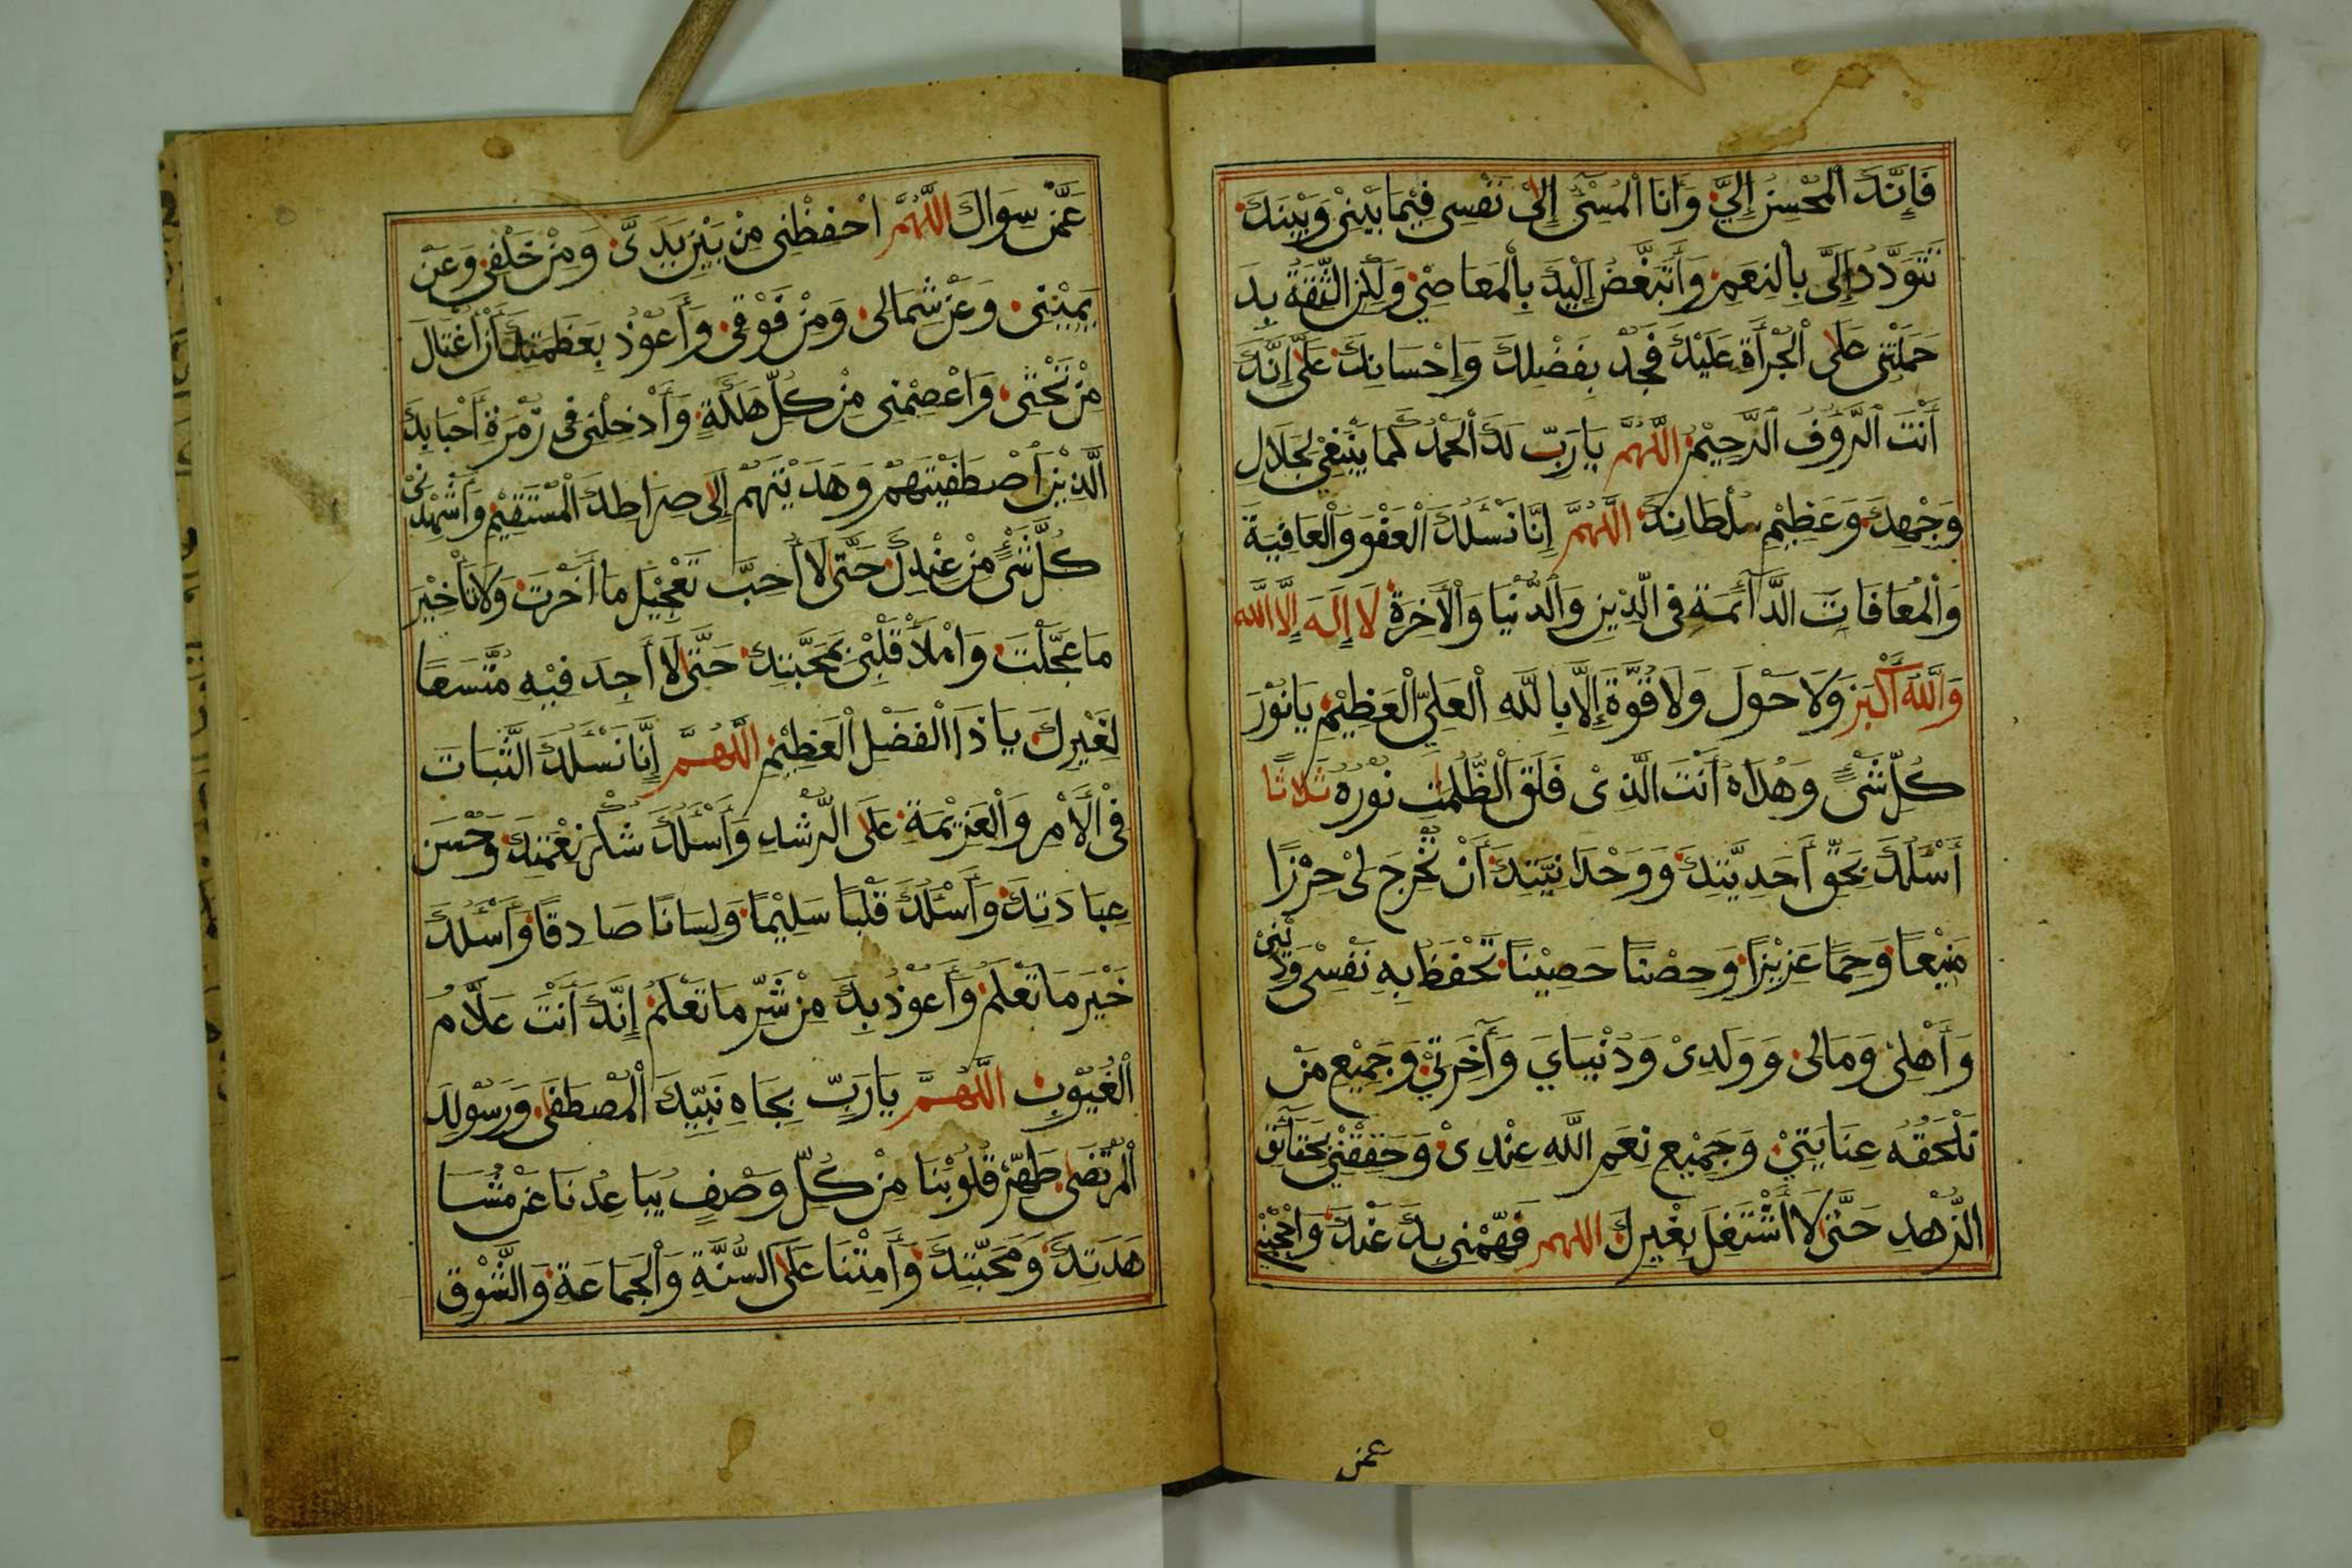 فَإِنَّكَ الْمُحْسِنُ إِلَيَّ وَأَنَا الْمُسِيْءُ إِلَىٰ نَفْسِي فِيْمَا بَيْنِيْ وَبَيْنَكَ
تَتَوَدَّدُ إِلَيَّ بِالنِعَمِ وَأَتَبَغَّضُ إِلَيْكَ بِالْمَعَاصِيْ وَلَكِنِ الثِّقَةُ بِكَ
حَمَلَتْنِي عَلَى الْجُرْأَةِ عَلَيْكَ فَجُدْ بِفَضْلِكَ وَإِحْسَانِكَ عَلَيَّ إِنَّكَ
أَنْتَ الرَّؤُفُ الرَّحِيْمُ اللَّهُمَّ يَارَبِّ لَكَ الْحَمْدُ كَمَا يَنْبَغِيْ لِجَلَالِ
وَجْهِكَ وَعَظِيْمِ سُلْطَانِكَ اللَّهُمَّ إِنَّا نَسْئَلُكَ الْعَفْوَ وَالْعَافِيَةَ
وَالْمُعَافَاتَ الدَّآئِمَةَ فِي الدِّيْنِ وَالدُّنْيَا وَالْآخِرَةِ لَا إِلَهَ إِلَّا اللَّه
وَاللَّهُ أَكْبَرُ وَلَا حَوْلَ وَلَا قُوَّةَ إِلَّا بِاللَّهِ الْعَلِيِّ الْعَظِيْمِ يَا نُوْرَ
كُلِّ شَيْءٍ وَهُدَاهُ أَنْتَ الَّذِيْ فَلَقَ الظُّلُمَٰتِ نُوْرُهُ ثَلَاثًا
أَسْئَلُكَ بِحَقِّ أَحَدِيَّتِكَ وَوَحْدَانِيَّتِكَ أَنْ تُخْرِجَ لِيْ حِرْزًا
مَنِيْعًا وَحِمًا عَزِيْزًا وَحِصْنًا حَصِيْنًا تَحْفَظُ بِهِ نَفْسِيْ وَدِيْنِيْ
وَأَهْلِيْ وَمَالِيْ وَوَلَدِيْ وَدُنْيَايَ وَآخِرَتِيْ وَجَمِيْعَ مَنْ
تَلْحَقُهُ عِنَايَتِيْ وَجَمِيْعِ نِعَمِ اللَّهِ عِنْدِيْ وَحَقِّقْنِيْ بِحَقَآئِقِ
الزُّهْدِ حَتَّى لَا أَشْتَغِلَ بِغَيْرِكَ اللهم فَهِّمْنِي بِكَ عَنْكَ وَاحْجُبْنِيْ
عمن
عَمَّنْ سِوَاكَ اللَّهُمَّ احْفَظْنِي مِنْ بَيْنِ يَدَيَّ وَمِنْ خَلْفِي وَعَنْ
يَمِيْنِي وَعَنْ شِمَالِي وَمِنْ فَوْقِي وَأَعُوْذُ بِعَظَمَتِكَ أَنْ أُغْتَالَ
مِنْ تَحْتِي وَاعْصِمْنِي مِنْ كُلِّ هَلَكَةٍ وَأَدْخِلْنِي فِي زُمْرَةِ أَحْبَابِكَ
الَّذِيْنَ اصْطَفَيْتَهُمْ وَهَدَيْتَهُمْ إِلَى صِرَاطِكَ الْمُسْتَقِيْمِ وَأَشْهِدْنِيْ
كُلَّ شَيْءٍ مِنْ عِنْدِكَ حَتَّى لَا أُحِبَّ تَعْجِيْلَ مَا أَخَّرْتَ وَلَا تَأْخِيْرَ
مَا عَجَّلْتَ وَامْلَأْ قَلْبِيْ بِمَحَبَّتِكَ حَتَّى لَا أَجِدَ فِيْهِ مُتَّسَعًا
لِغَيْرِكَ يَا ذَا الْفَضْلِ الْعَظِيْمِ اللَّهُمَّ إِنَّا نَسْئَلُكَ الثَّبَاتَ
فِي الْأَمْرِ وَالْعَزِيْمَةَ عَلَى الرُّشْدِ وَأَسْئَلُكَ شُكْرَ نِعْمَتِكَ وَحُسْنَ
عِبَادَتِكَ وَأَسْئَلُكَ قَلْبًا سَلِيْمًا وَلِسَانًا صَادِقًا وَأَسْئَلُكَ
خَيْرَ مَا تَعْلَمُ وَأَعُوْذُ بِكَ مِنْ شَرِّ مَا تَعْلَمُ إِنَّكَ أَنْتَ عَلَّامُ
الْغُيُوْبِ اللَّهُمَّ يَارَبِّ بِجَاهِ نَبِيِّكَ الْمُصْطَفَى وَرَسُولِكَ
الْمُرْتَضَى طَهِّرْ قُلُوْبَنَا مِنْ كُلِّ وَصْفٍ يُبَاعِدُنَا عَنْ مُشَا
هَدَتِكَ وَمَحَبَّتِكَ وَأَمِتْنَا عَلَى السُّنَّةِ وَالْجَمَاعَةِ وَالشَّوْقِ